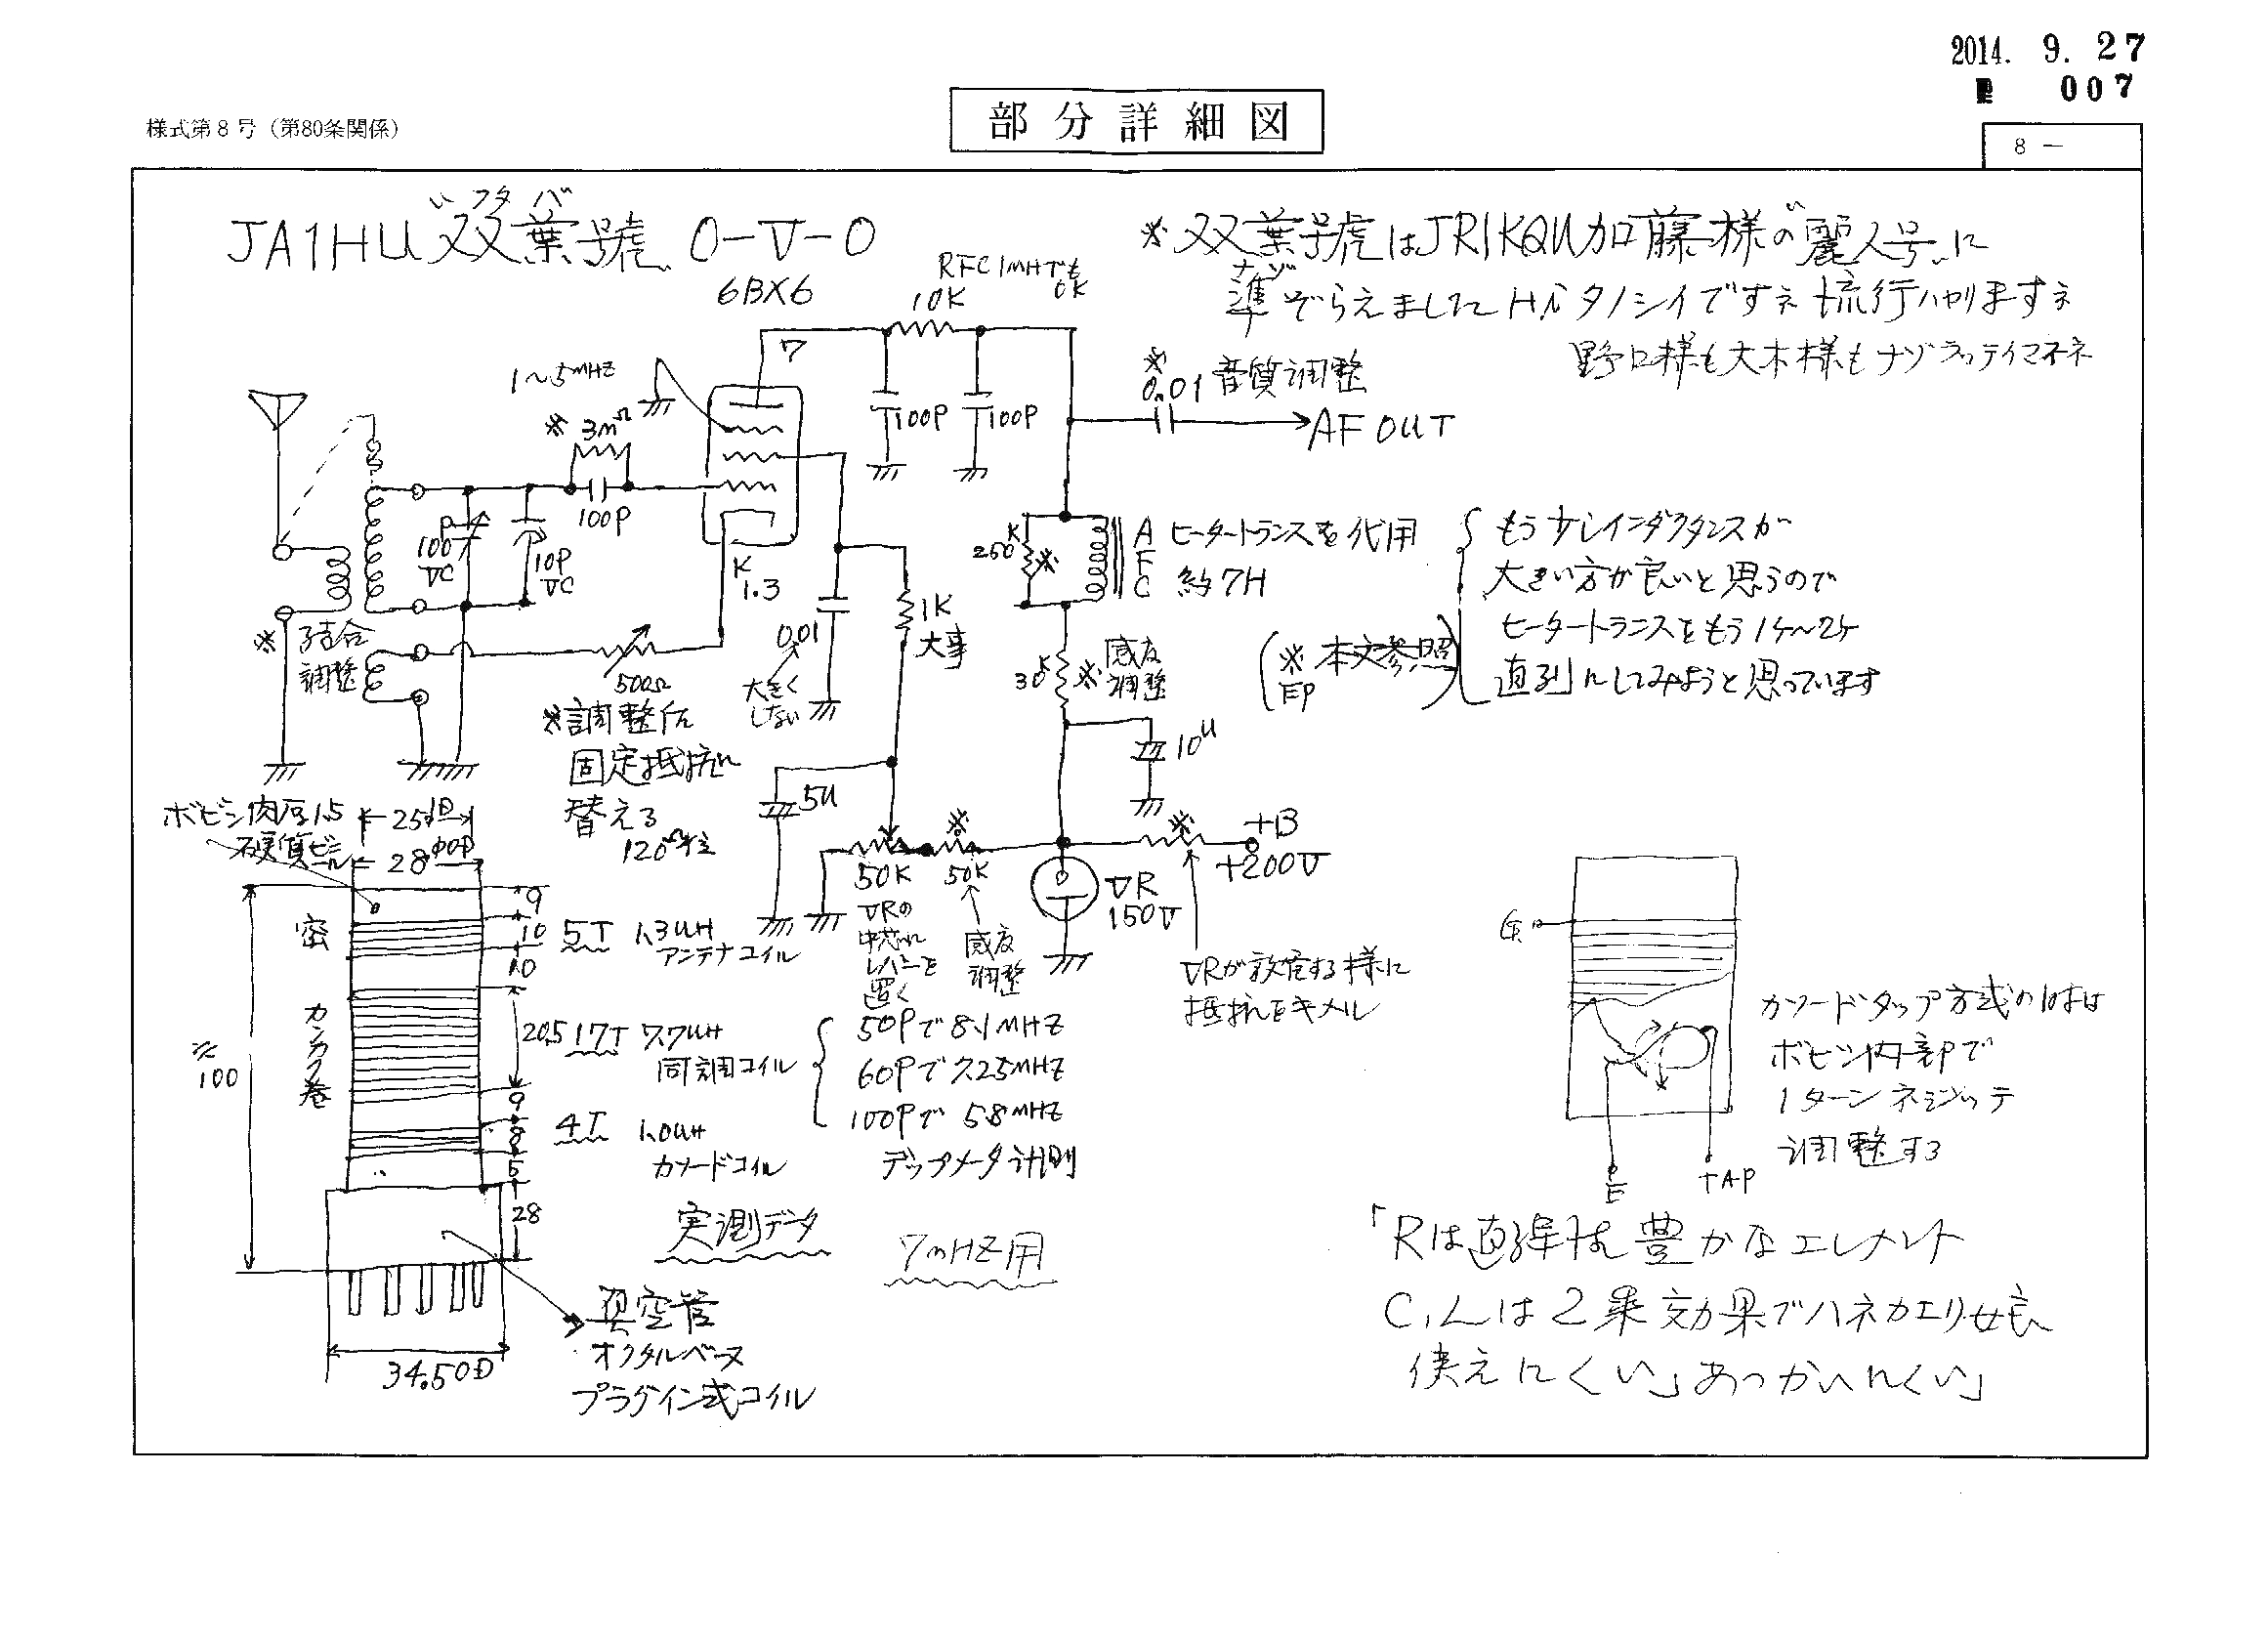 2014. 9. 27
007
様式第８号（第80条関係）
部分詳細図
8 —
フタバ
JA1HU〝双葉號〟 0-V-0
6BX6
※双葉號はJR1KQU加藤様の〝麗人号〟に
ナゾ
準ぞらえました Hi タノシイですネ 流行ハヤリますネ
野口様も大木様もナゾラッテイマスネ
RFC 1MHでも
OK
10K
7
1～5
MHZ
※ 3mΩ
100P
100P
※
0.01 音質調整
AF OUT
100P
VC
10P
VC
100P
K
1.3
250K
※
AFC
ヒータートランスを代用
約7H
もう少しインダクタンスが
大きい方が良いと思うので
ヒータートランスをもう1ケ～2ケ
直列にしてみようと思っています
(※本文参照)
※ 結合
調整
500Ω
※調整后
固定抵抗に
替える
120Ω位
0.01
大きく
しない
1K
大事
30K
※
感度
調整
10U
5U
50K
VRの
中芯に
レバーを
置く
※
50K
感度
調整
VR
150V
※
+B
+200V
VRが放電する様に
抵抗をキメル
ボビン肉厚1.5
硬質ビニール
25
28
9
10
10
20.5
9
8
5
28
≒
100
密
カンカク巻
5T 1.3UH
アンテナコイル
17T 7.7UH
同調コイル
4T 1.0UH
カソードコイル
50Pで8.1MHZ
60Pで7.25MHZ
100Pで5.8MHZ
デップメータ計測
実測データ
7mHZ用
真空管
オクタルベース
プラグイン式コイル
34.5OD
G
E
TAP
カソードタップ方式の時は
ボビン内部で
1ターンネジッテ
調整する
「Rは直線性豊かなエレメント
C,Lは2乗効果でハネカエリ
使えにくい」あつかいにくい」